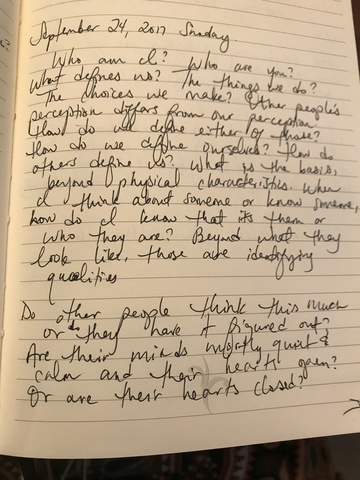 September 24, 2017 Sunday
Who am I? Who are you?
What defines us? The things we do?
The choices we make? Other people's
perception differs from our perception.
How do we define either of those?
How do we define ourselves? How do
others define us? What is the basis,
beyond physical characteristics. When
I think about someone or know someone,
how do I know that its them or
who they are? Beyond what they
look like, those are identifying
qualities
Do other people think this much
or do they have it figured out?
Are their minds mostly quiet &
calm and their hearts open?
Or are their hearts closed?